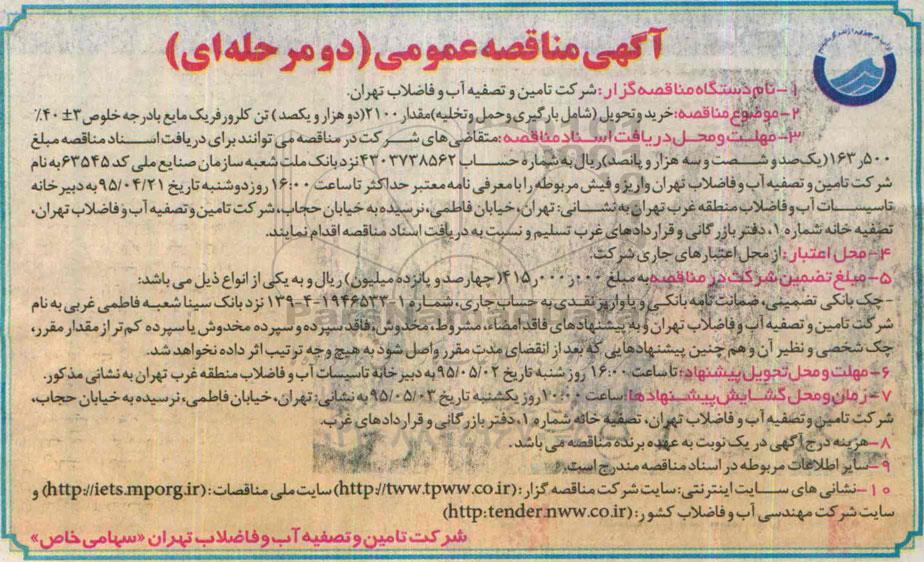 آگهی مناقصه عمومی (دو مرحله‌ای)
۱- نام دستگاه مناقصه گزار: شرکت تامین و تصفیه آب و فاضلاب تهران.
۲- موضوع مناقصه: خرید و تحویل (شامل بارگیری و حمل و تخلیه) مقدار ۲۱۰۰ (دو هزار و یکصد) تن کلرورفریک مایع با درجه خلوص ۳±۴۰٪
۳- مهلت و محل دریافت اسناد مناقصه: متقاضی های شرکت در مناقصه می توانند برای دریافت اسناد مناقصه مبلغ
۱۶۳٫۵۰۰ (یک صد و شصت و سه هزار و پانصد) ریال به شماره حساب ۴۳۰۳۷۳۸۵۶۲ نزد بانک ملت شعبه سازمان صنایع ملی کد ۶۳۵۴۵ به نام
شرکت تامین و تصفیه آب و فاضلاب تهران واریز و فیش مربوطه را با معرفی نامه معتبر حداکثر تا ساعت ۱۶:۰۰ روز دوشنبه تاریخ ۹۵/۰۴/۲۱ به دبیرخانه
تاسیسات آب و فاضلاب منطقه غرب تهران به نشانی: تهران، خیابان فاطمی، نرسیده به خیابان حجاب، شرکت تامین و تصفیه آب و فاضلاب تهران،
تصفیه خانه شماره ۱، دفتر بازرگانی و قراردادهای غرب تسلیم و نسبت به دریافت اسناد مناقصه اقدام نمایند.
۴- محل اعتبار: از محل اعتبارهای جاری شرکت.
۵- مبلغ تضمین شرکت در مناقصه به مبلغ ۴۱۵٫۰۰۰٫۰۰۰ (چهارصد و پانزده میلیون) ریال و به یکی از انواع ذیل می باشد:
- چک بانکی تضمینی، ضمانت نامه بانکی و یا واریز نقدی به حساب جاری، شماره ۱-۱۹۴۶۵۳۳-۴-۱۳۹ نزد بانک سینا شعبه فاطمی غربی به نام
شرکت تامین و تصفیه آب و فاضلاب تهران و به پیشنهادهای فاقد امضاء، مشروط، مخدوش، فاقد سپرده و سپرده مخدوش یا سپرده کم تر از مقدار مقرر،
چک شخصی و نظیر آن و هم چنین پیشنهادهایی که بعد از انقضای مدت مقرر واصل شود به هیچ وجه ترتیب اثر داده نخواهد شد.
۶- مهلت و محل تحویل پیشنهاد: تا ساعت ۱۶:۰۰ روز شنبه تاریخ ۹۵/۰۵/۰۲ به دبیرخانه تاسیسات آب و فاضلاب منطقه غرب تهران به نشانی مذکور.
۷- زمان و محل گشایش پیشنهادها: ساعت ۱۰:۰۰ روز یکشنبه تاریخ ۹۵/۰۵/۰۳ به نشانی: تهران، خیابان فاطمی، نرسیده به خیابان حجاب،
شرکت تامین و تصفیه آب و فاضلاب تهران، تصفیه خانه شماره ۱، دفتر بازرگانی و قراردادهای غرب.
۸- هزینه درج آگهی در یک نوبت به عهده برنده مناقصه می باشد.
۹- سایر اطلاعات مربوطه در اسناد مناقصه مندرج است.
۱۰- نشانی های سایت اینترنتی: سایت شرکت مناقصه گزار: (http://tww.tpww.co.ir) سایت ملی مناقصات: (http://iets.mporg.ir) و
سایت شرکت مهندسی آب و فاضلاب کشور: (http:tender.nww.co.ir)
شرکت تامین و تصفیه آب و فاضلاب تهران «سهامی خاص»